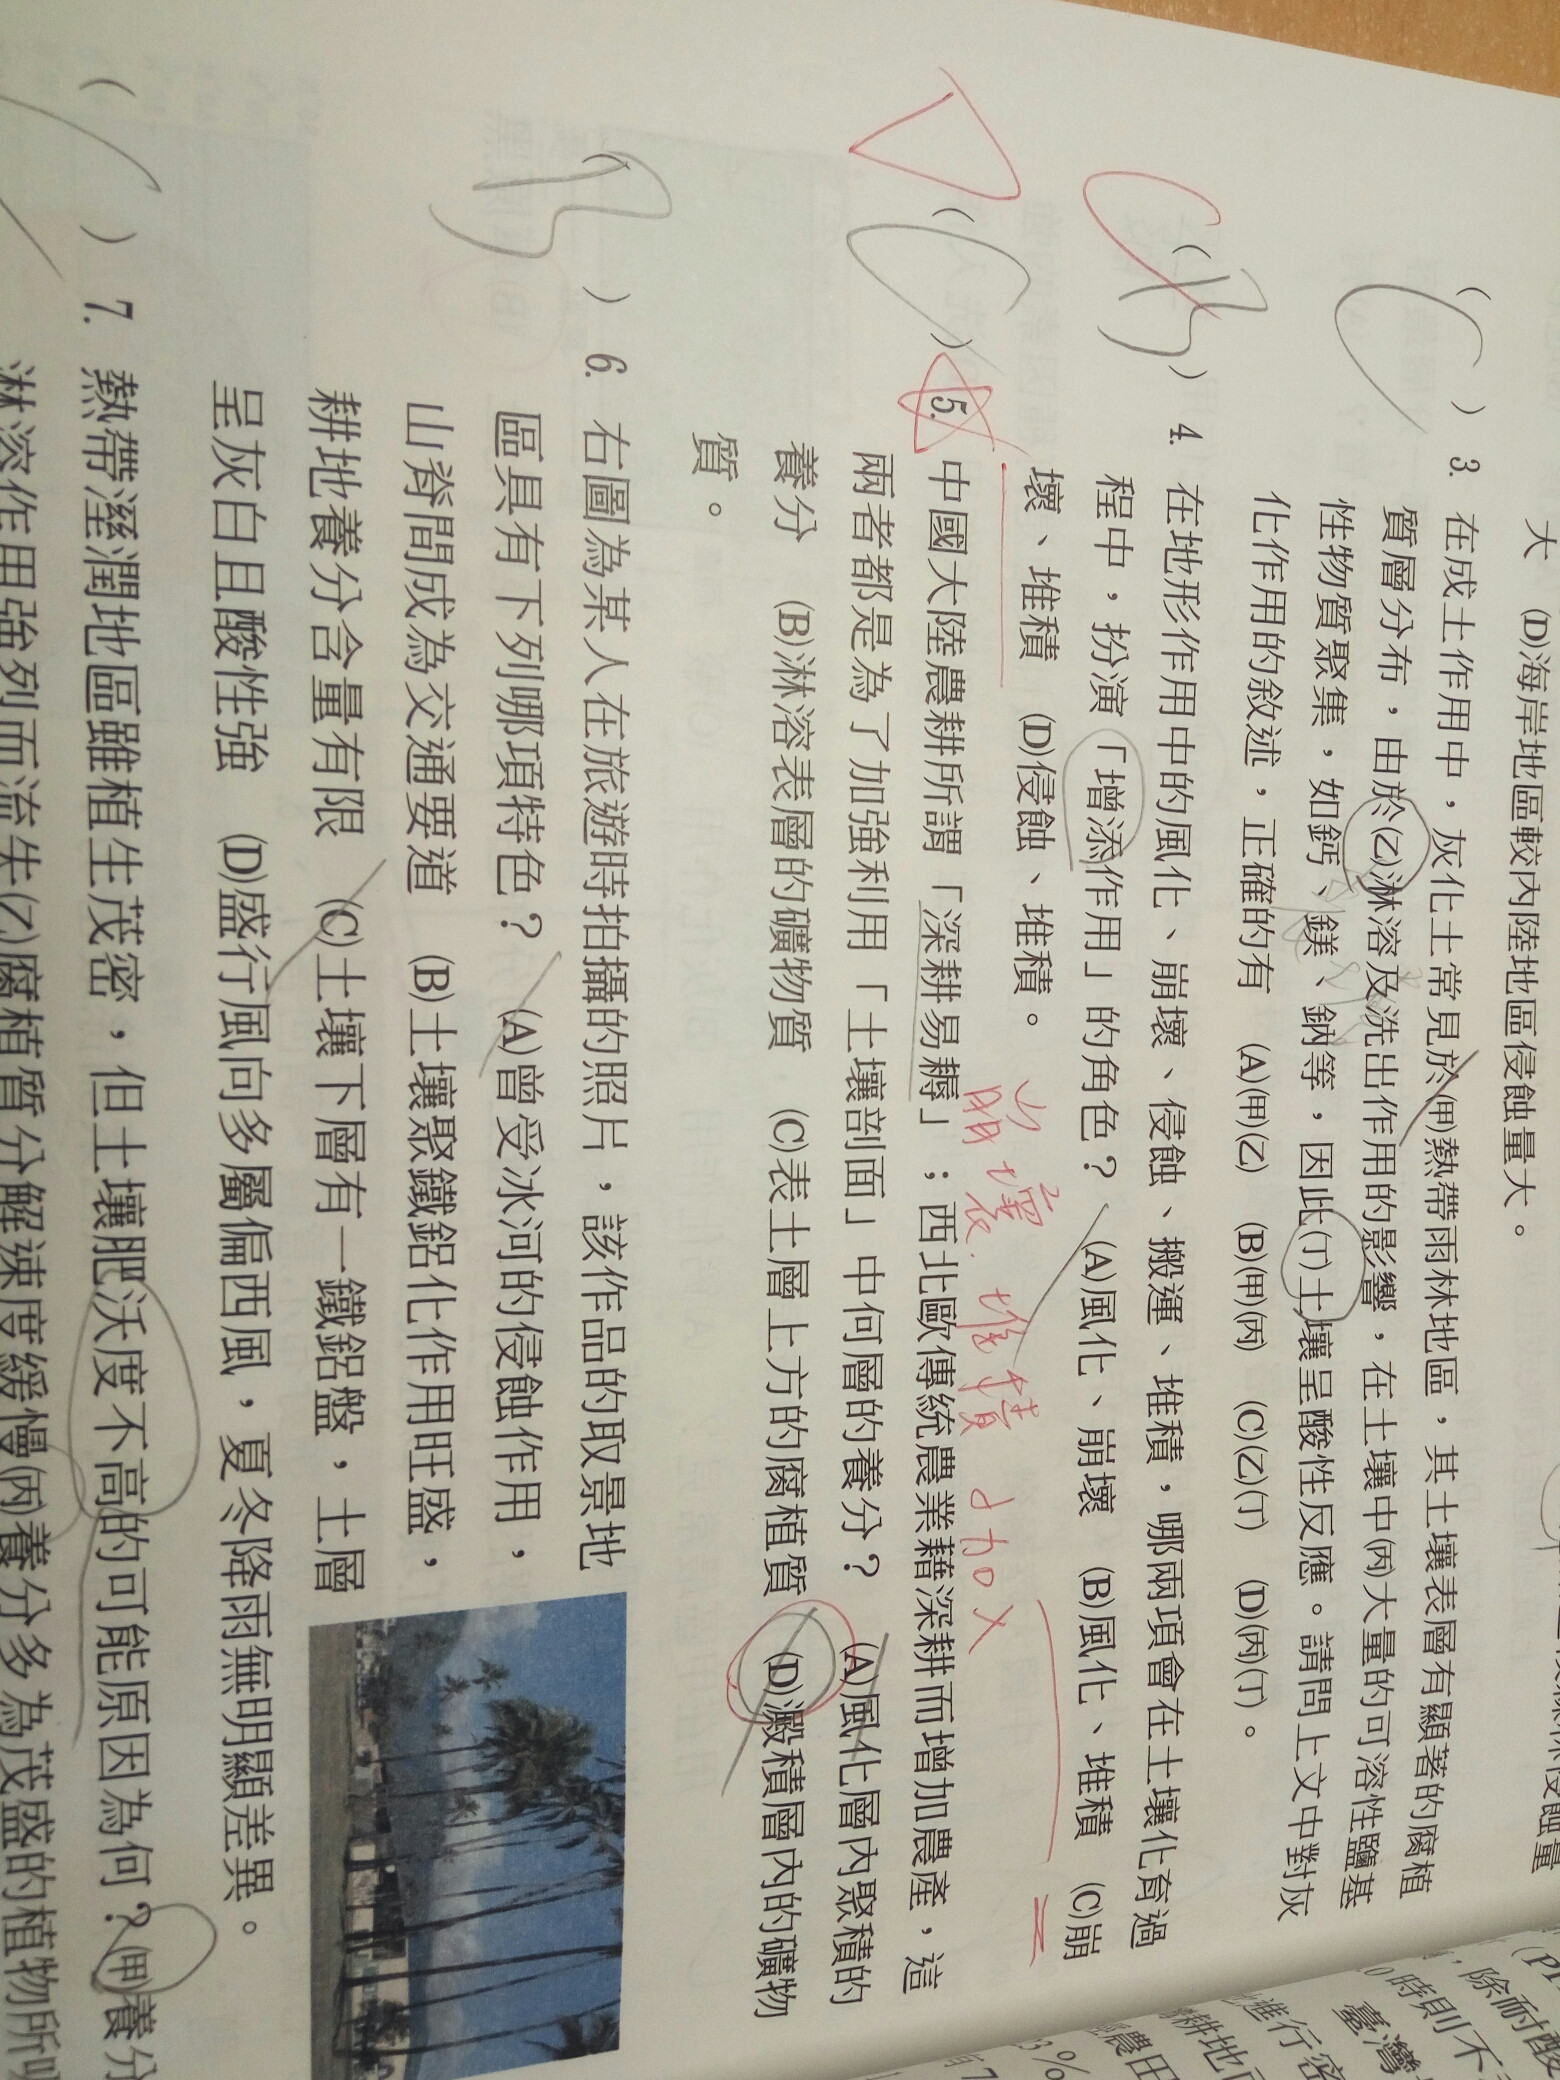 大　(D)海岸地區較內陸地區侵蝕量大。
( C ) 3. 在成土作用中，灰化土常見於(甲)熱帶雨林地區，其土壤表層有顯著的腐植
質層分布，由於(乙)淋溶及洗出作用的影響，在土壤中(丙)大量的可溶性鹽基
性物質聚集，如鈣、鎂、鈉等，因此(丁)土壤呈酸性反應。請問上文中對灰
化作用的敘述，正確的有　(A)(甲)(乙)　(B)(甲)(丙)　(C)(乙)(丁)　(D)(丙)(丁)。
C ( B ) 4. 在地形作用中的風化、崩壞、侵蝕、搬運、堆積，哪兩項會在土壤化育過
程中，扮演「增添作用」的角色？　(A)風化、崩壞　(B)風化、堆積　(C)崩
壞、堆積　(D)侵蝕、堆積。
崩壞、堆積
D ( C ) 5. 中國大陸農耕所謂「深耕易耨」；西北歐傳統農業藉深耕而增加農產，這
兩者都是為了加強利用「土壤剖面」中何層的養分？　(A)風化層內聚積的
養分　(B)淋溶表層的礦物質　(C)表土層上方的腐植質　(D)澱積層內的礦物
質。
( B ) 6. 右圖為某人在旅遊時拍攝的照片，該作品的取景地
區具有下列哪項特色？　(A)曾受冰河的侵蝕作用，
山脊間成為交通要道　(B)土壤聚鐵鋁化作用旺盛，
耕地養分含量有限　(C)土壤下層有一鐵鋁盤，土層
呈灰白且酸性強　(D)盛行風向多屬偏西風，夏冬降雨無明顯差異。
( ) 7. 熱帶溼潤地區雖植生茂密，但土壤肥沃度不高的可能原因為何？(甲)養分
淋溶作用強列而流失(乙)腐植質分解速度緩慢(丙)養分多為茂盛的植物所吸